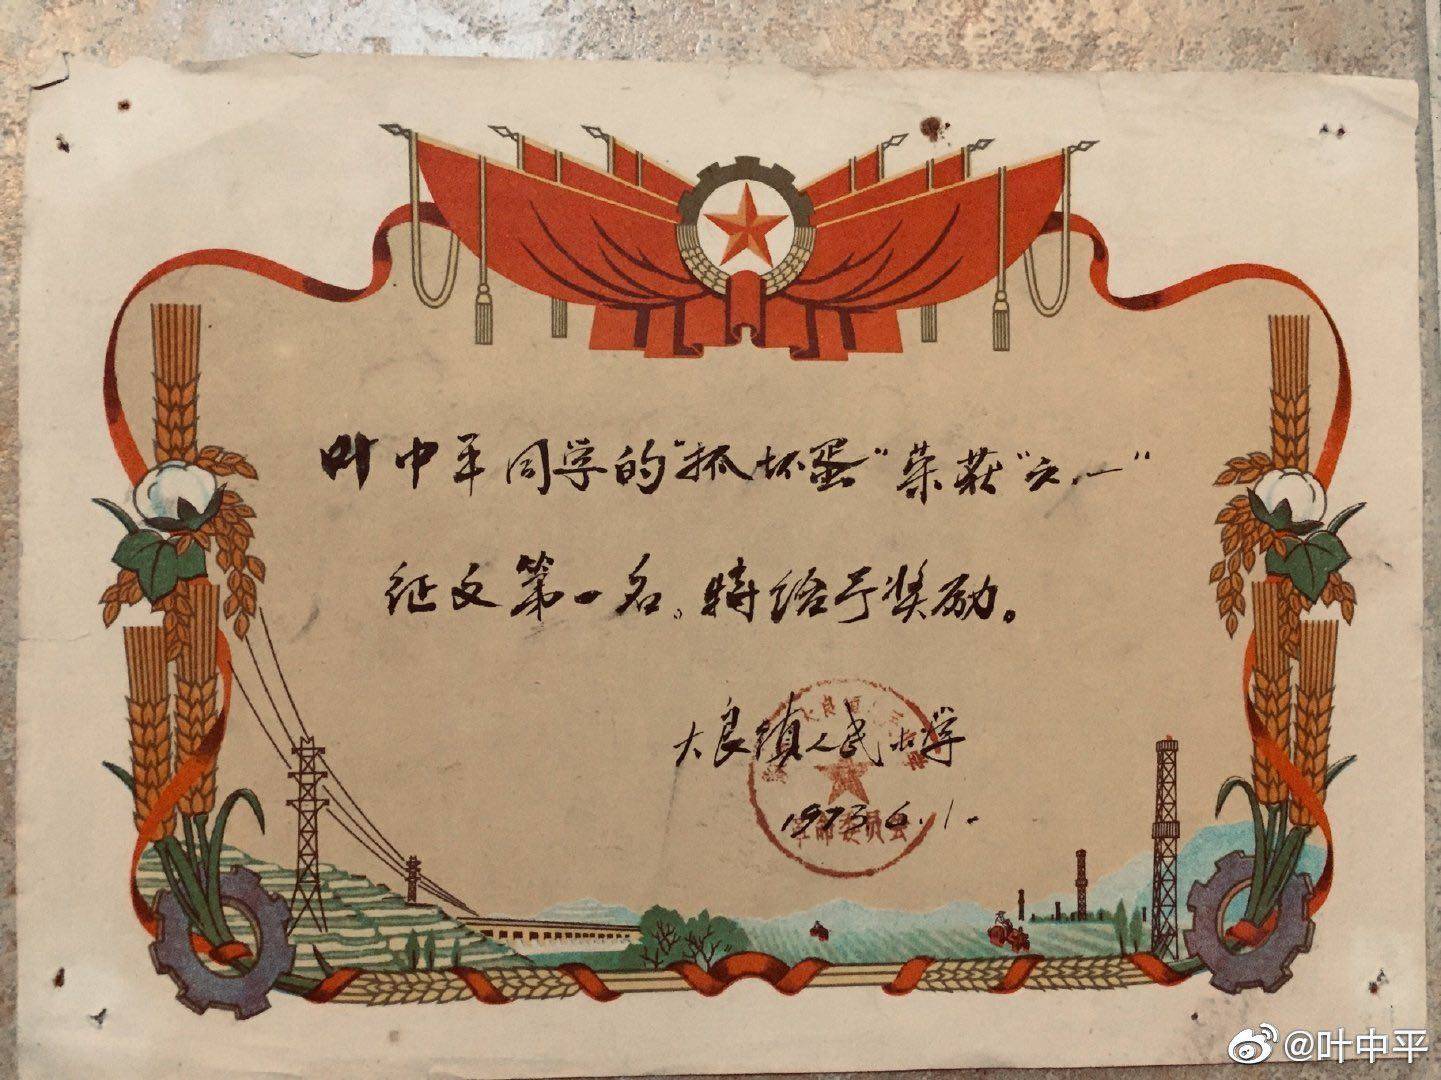 叶中平同学的“抓坏蛋”荣获“六.一”
征文第一名。特给予奖励。
大良镇人民小学
1973.6.1.
革命委员会
@叶中平